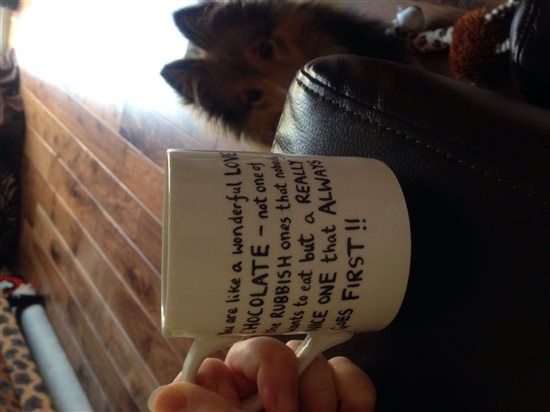 are like a wonderful LOVE
CHOCOLATE - not one of
the RUBBISH ones that
to eat but a REALLY
NICE ONE that ALWAYS
GOES FIRST!!